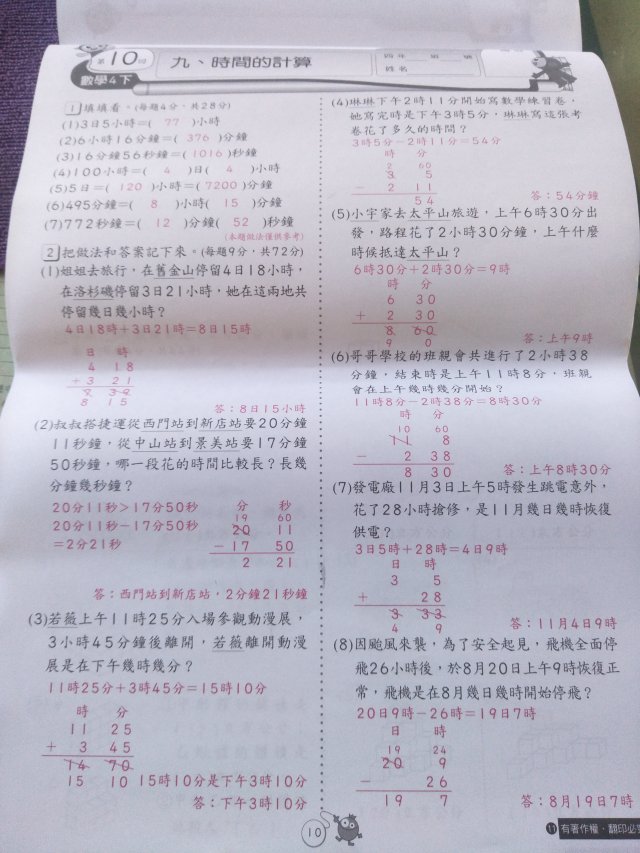 第10回
九、時間的計算
四年 班 號
姓名
數學4下
1 填填看。(每題4分,共28分)
(1)3日5小時=( 77 )小時
(2)6小時16分鐘=( 376 )分鐘
(3)16分鐘56秒鐘=( 1016 )秒鐘
(4)100小時=( 4 )日( 4 )小時
(5)5日=( 120 )小時=( 7200 )分鐘
(6)495分鐘=( 8 )小時( 15 )分鐘
(7)772秒鐘=( 12 )分鐘( 52 )秒鐘
(本題做法僅供參考)
2 把做法和答案記下來。(每題9分,共72分)
(1)姐姐去旅行,在舊金山停留4日18小時,
在洛杉磯停留3日21小時,她在這兩地共
停留幾日幾小時?
4日18時+3日21時=8日15時
日 時
4 18
+ 3 21
7 39
8 15
答:8日15小時
(2)叔叔搭捷運從西門站到新店站要20分鐘
11秒鐘,從中山站到景美站要17分鐘
50秒鐘,哪一段花的時間比較長?長幾
分鐘幾秒鐘?
20分11秒>17分50秒
20分11秒-17分50秒
=2分21秒
分 秒
19 60
20 11
-17 50
2 21
答:西門站到新店站,2分鐘21秒鐘
(3)若薇上午11時25分入場參觀動漫展,
3小時45分鐘後離開,若薇離開動漫
展是在下午幾時幾分?
11時25分+3時45分=15時10分
時 分
11 25
+ 3 45
14 70
15 10 15時10分是下午3時10分
答:下午3時10分
(4)琳琳下午2時11分開始寫數學練習卷,
她寫完時是下午3時5分,琳琳寫這張考
卷花了多久的時間?
3時5分-2時11分=54分
時 分
2 60
3 5
- 2 11
54
答:54分鐘
(5)小宇家去太平山旅遊,上午6時30分出
發,路程花了2小時30分鐘,上午什麼
時候抵達太平山?
6時30分+2時30分=9時
時 分
6 30
+ 2 30
8 60
9 0
答:上午9時
(6)哥哥學校的班親會共進行了2小時38
分鐘,結束時是上午11時8分,班親
會在上午幾時幾分開始?
11時8分-2時38分=8時30分
時 分
10 60
11 8
- 2 38
8 30
答:上午8時30分
(7)發電廠11月3日上午5時發生跳電意外,
花了28小時搶修,是11月幾日幾時恢復
供電?
3日5時+28時=4日9時
日 時
3 5
+ 28
3 33
4 9
答:11月4日9時
(8)因颱風來襲,為了安全起見,飛機全面停
飛26小時後,於8月20日上午9時恢復正
常,飛機是在8月幾日幾時開始停飛?
20日9時-26時=19日7時
日 時
19 24
20 9
- 26
19 7
答:8月19日7時
10
11 有著作權‧翻印必